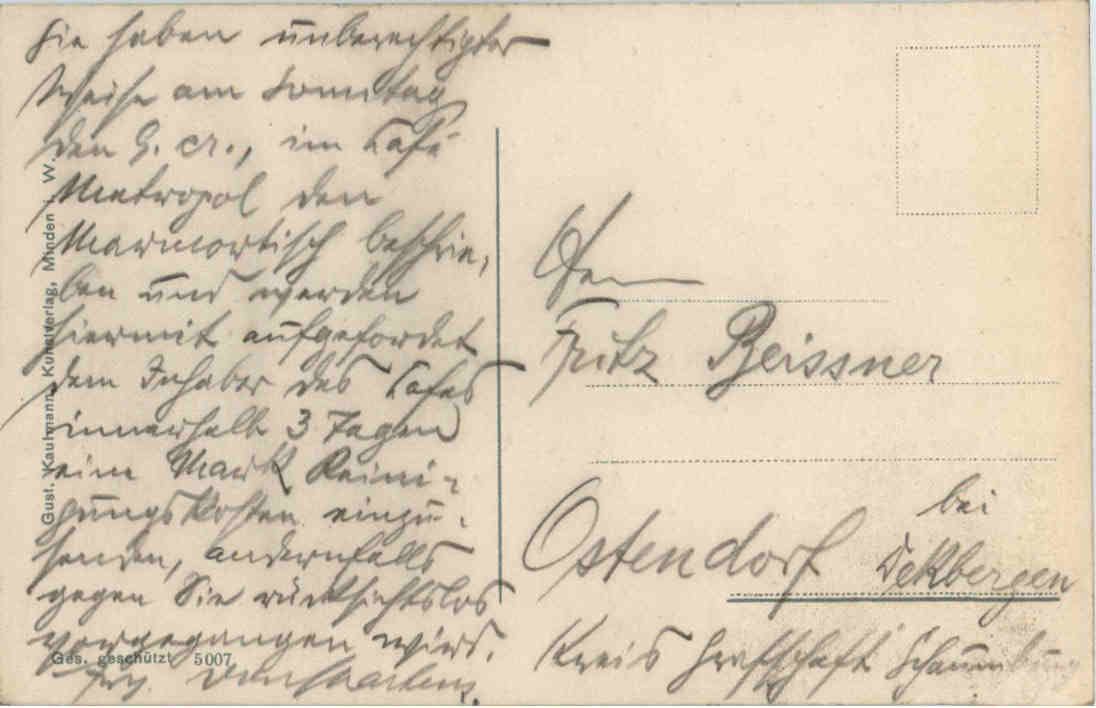 Sie haben unberechtigter
Weise am Sonntag
den 9. cr., im Café
Metropol den
Marmortisch beschrie-
ben und werden
hiermit aufgefordert
dem Inhaber des Cafes
innerhalb 3 Tagen
eine Mark Reini-
gungskosten einzu-
senden, andernfalls
gegen Sie rücksichtslos
vorgegangen wird.
Gust. Kaufmann, Kunstverlag, Minden i. W.
Ges. geschützt 5007
Herrn
Fritz Beissner
Ostendorf bei
Dekbergen
Kreis Grafschaft Schaumburg